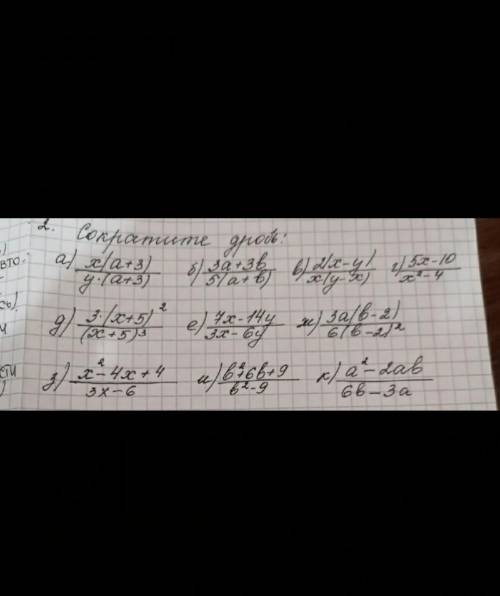 2. Сократите дробь:
а) x(a+3)/y·(a+3) б) 3a+3b/5(a+b) в) 2(x-y)/x(y-x) г) 5x-10/x²-4
д) 3·(x+5)²/(x+5)³ е) 7x-14y/3x-6y ж) 3a(b-2)/6(b-2)²
з) x²-4x+4/3x-6 и) b²+6b+9/b²-9 к) a²-2ab/6b-3a